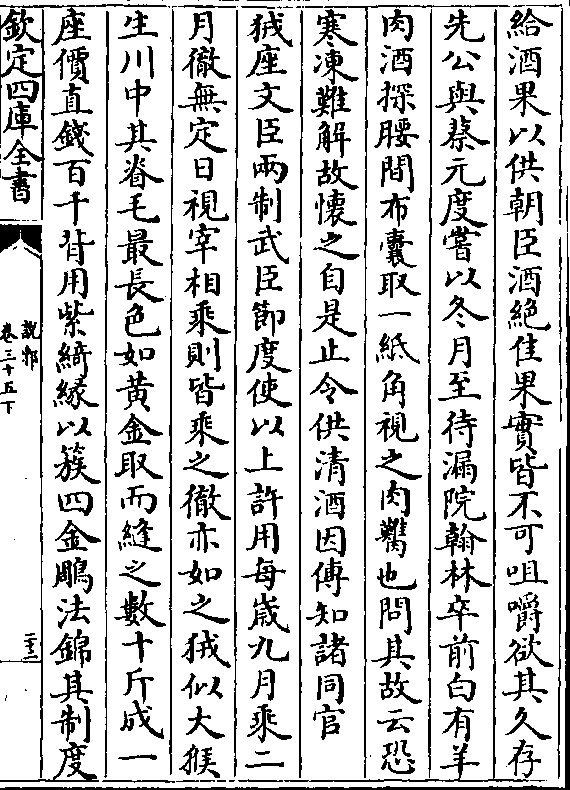 給酒果以供朝臣酒絶佳果實皆不可咀嚼欲其久存
先公與蔡元度嘗以冬月至待漏院翰林卒前白有羊
肉酒探腰間布囊取一紙角視之肉臡也問其故云恐
寒凍難解故懷之自是止令供清酒因傳知諸同官
狨座文臣兩制武臣節度使以上許用每嵗九月乘二
月徹無定日視宰相乘則皆乘之徹亦如之狨似大猴
生川中其脊毛最長色如黄金取而縫之數十斤成一
座價直錢百千背用紫綺縁以簇四金鵰法錦其制度
欽定四庫全書
說郛
卷三十五下
二十二